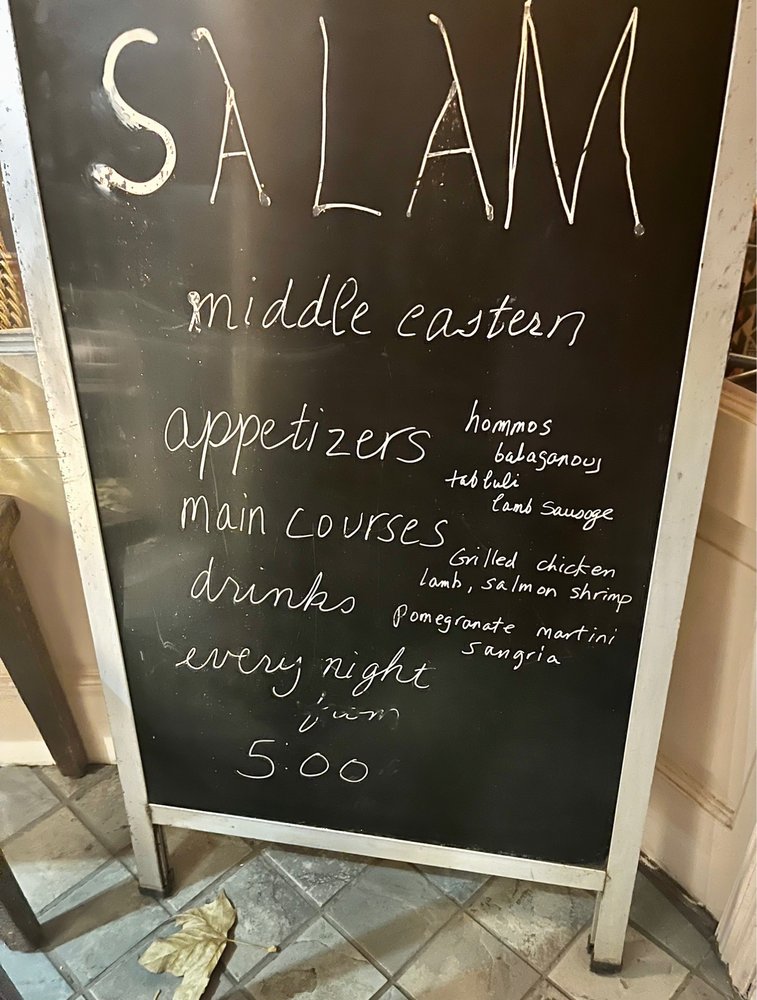 SALAM
middle eastern
appetizers
hommos
babaganouj
tabbuli
lamb sausage
main courses
Grilled chicken
lamb, salmon shrimp
drinks
pomegranate martini
sangria
every night
5:00